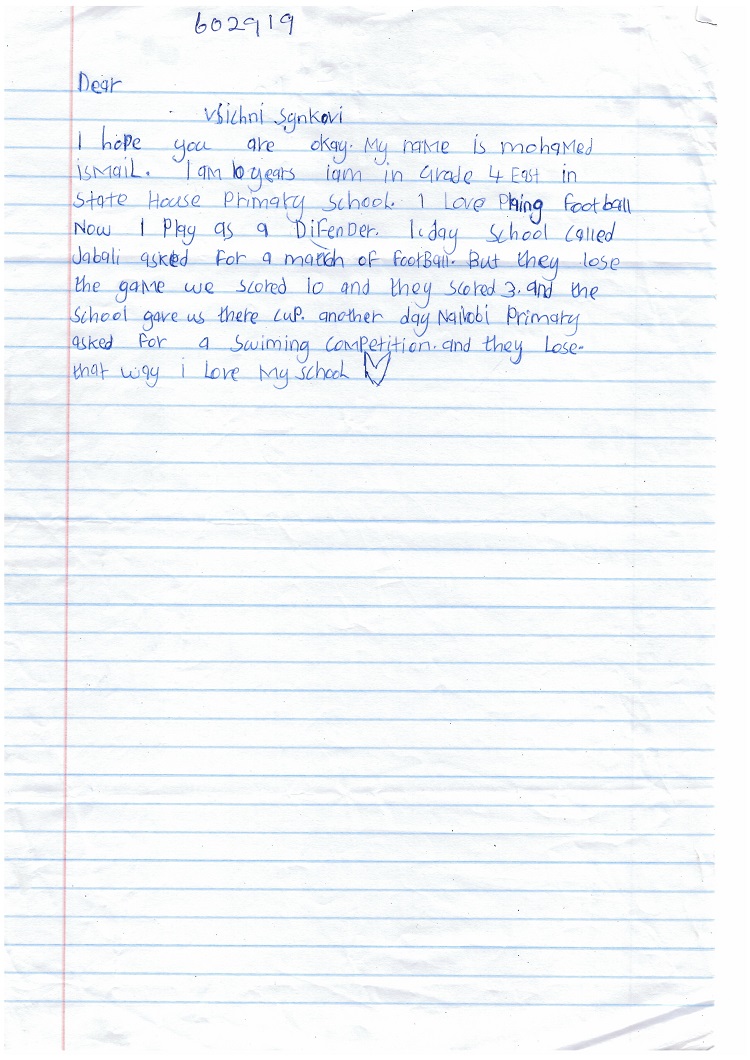 602919
Dear
Vsichni Sankovi
I hope you are okay. My name is mohaMed
isMaiL. I am 10 years iam in Grade 4 East in
State House Primary School. I Love Plaing football
Now I Play as a DifenDer. 1 day School Called
Jabali asked for a match of footBall. But they lose
the game we scored 10 and they scored 3. and the
School gave us there cup. another day Nairobi Primary
asked for a Swiming comPetition. and they Lose.
that way i Love My School